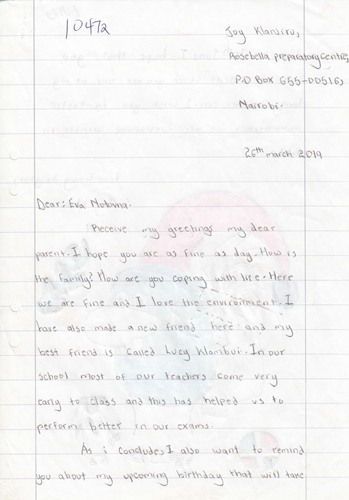 10472
Joy Wanjiru,
Rosebella preparatory Centre,
P.O Box 655-00516,
Nairobi.
26th march 2019
Dear: Eva
Receive my greetings my dear
parent. I hope you are as fine as day. How is
the family? How are you coping with life. Here
we are fine and I love the environment. I
have also made a new friend here and my
best friend is called Lucy Wambui. In our
school most of our teachers come very
early to class and this has helped us to
perform better in our exams.
As i conclude, I also want to remind
you about my upcoming birthday that will take